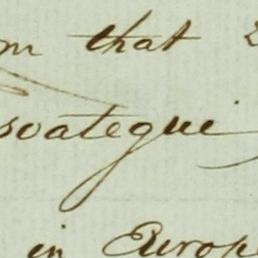 m that
soategui
in Europe